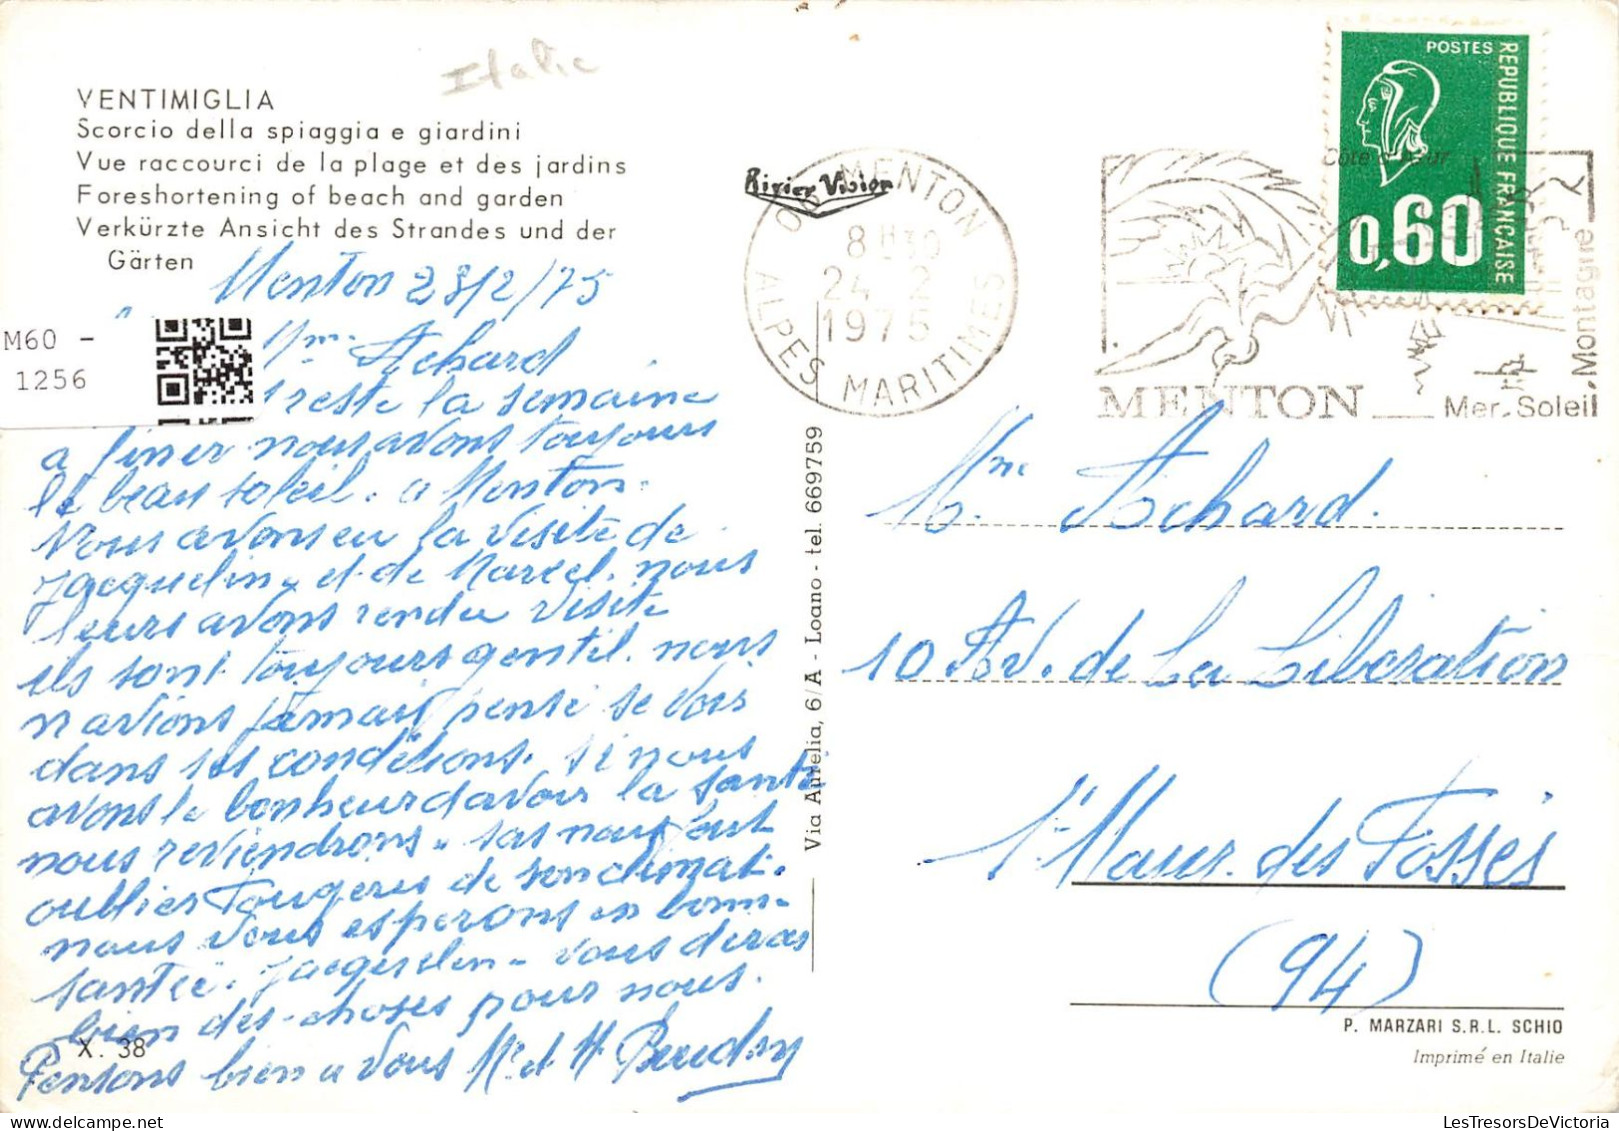 Italie
VENTIMIGLIA
Scorcio della spiaggia e giardini
Vue raccourci de la plage et des jardins
Foreshortening of beach and garden
Verkürzte Ansicht des Strandes und der
Gärten
Menton 23/2/75
M60 -
1256
Mme Achard
reste la semaine
a finer nous avons toujours
le beau soleil. a Menton.
Nous avons eu la visite de
Jacquelin, et de Marcel. nous
leurs avons rendu visite
ils sont toujours gentil. nous
n avions jamais pensé se voir
dans ses conditions. si nous
avons le bonheur davoir la santé
nous reviendrons. sas nous faut
oublier Fougeres de son climat.
nous vous esperons en bonne
santée. Jacquelin vous diras
bien des choses pour nous.
X. 38
Pensons bien a vous Mr et M
Rivier Vision
06 MENTON
8 H30
24 - 2
1975
ALPES MARITIMES
POSTES
REPUBLIQUE FRANÇAISE
0,60
Côte d'Azur
MENTON
Mer. Soleil
Montagne
Via Aurelia, 6/A - Loano - tel. 669759
Mme Achard.
10 Av. de La Libération
St Maur. des Fossés
(94)
P. MARZARI S.R.L. SCHIO
Imprimé en Italie
LesTresorsDeVictoria.com